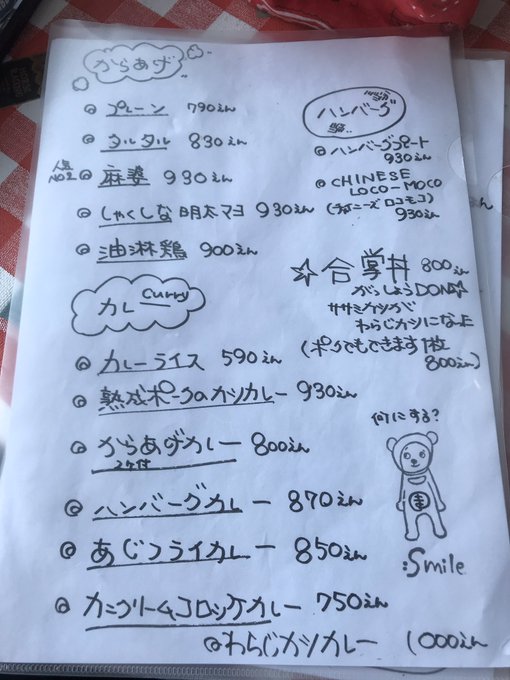 からあげ
◎ プレーン 790えん
◎ タルタル 830えん
人気NO2 ◎ 麻婆 930えん
◎ しゃくしな明太マヨ 930えん
◎ 油淋鶏 900えん
カレー Curry
◎ カレーライス 590えん
◎ 熟成ポークのカツカレー 930えん
◎ からあげカレー 800えん
2ケ付
◎ ハンバーグカレー 870えん
◎ あじフライカレー 850えん
◎ カニクリームコロッケカレー 750えん
◎ わらじカツカレー 1000えん
ハンバーグ
◎ ハンバーグプレート
930えん
◎ CHINESE
LOCO-MOCO
(チャイニーズ ロコモコ)
930えん
☆合掌丼 800えん
がっしょうDON☆
ササミカツが
わらじカツになった
(ポークでもできます1枚
800えん)
何にする?
:Smile